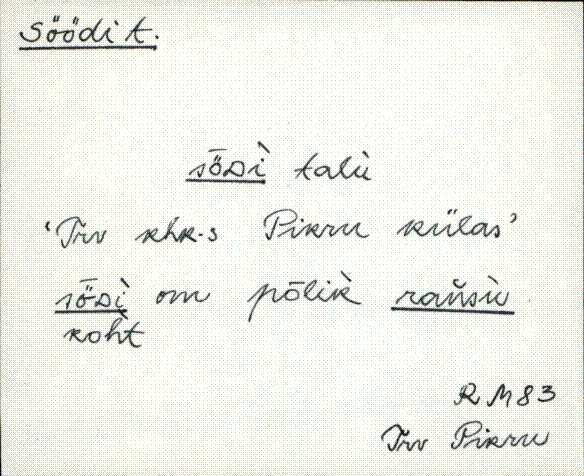 Söödi t.
sȫᴅì talù
‘Trv khk-s Pikru külas’
sȫᴅì om põlik rau̬sù
koht
RM83
Trv Pikru